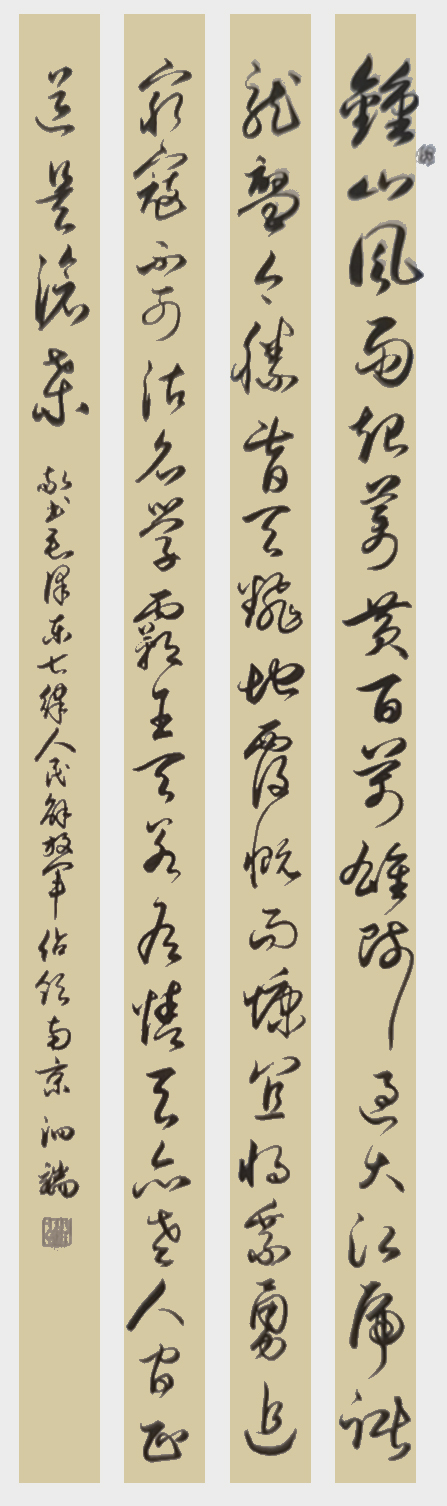 鐘山風雨起蒼黃百萬雄師過大江虎踞
龍盤今勝昔天翻地覆慨而慷宜將剩勇追
窮寇不可沽名學霸王天若有情天亦老人間正
道是滄桑 敬書毛澤東七律人民解放軍佔領南京 泗端